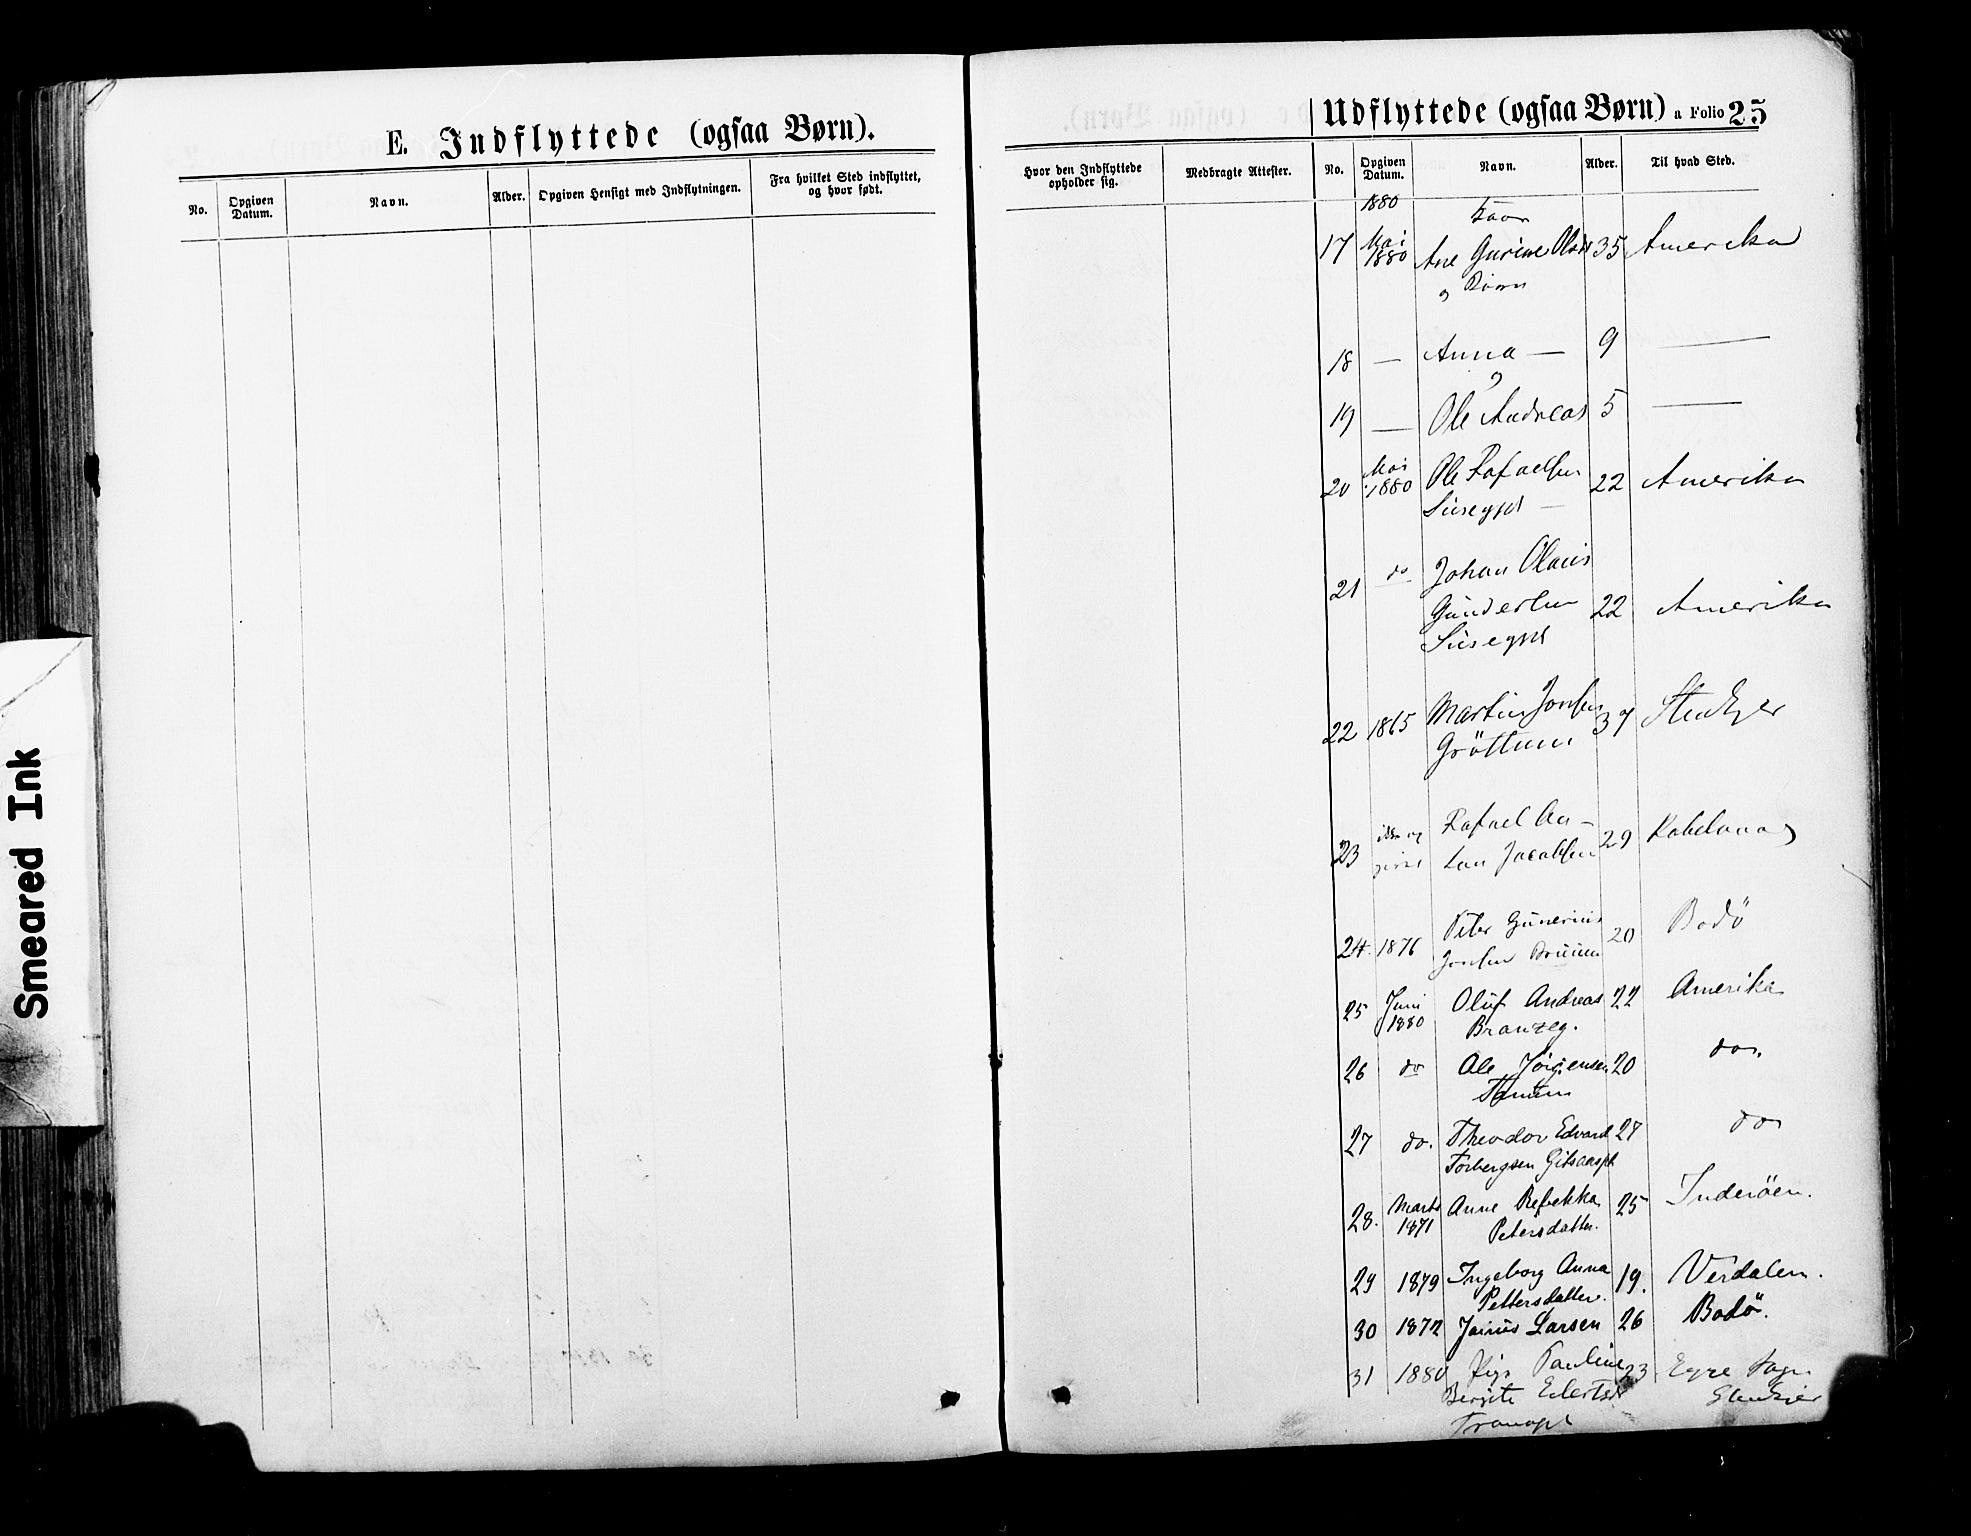 E. Indflyttede (ogsaa Børn).
No.
Opgiven Datum.
Navn.
Alder.
Opgiven Hensigt med Indflytningen.
Fra hvilket Sted indflyttet, og hvor født.
Hvor den Indflyttede opholder sig.
Medbragte Attester.
Udflyttede (ogsaa Børn) a Folio 25
No.
Opgiven Datum.
Navn.
Alder.
Til hvad Sted.
1880
17 Mai 1880 Ane Gurine Olsdr 35 Amerika
og Börn
18 — Anna — 9 —
og
19 — Ole Andreas 5 —
20 Mai 1880 Ole Rafaelsen 22 Amerika
21 do Johan Olaus
Gundersen 22 Amerika
22 1865 Martin Jonsen 37 Stenkjer
Gröttum
23 ikke og Rafael An- 29
ton Jacobsen
24. 1876 Peter Gunerius 20 Bodö
Jonsen
25 Juni 1880 Oluf Andreas 22 Amerika
Branzeg.
26 do Ole Jörgensen 20 do.
27 do. Theodor Edvard 27 do
Torbergsen
28. Marts 1871 Anne Rebekka 25 Inderöen.
Petersdatter.
29 1879 Ingeborg Anna 19. Verdalen.
Pettersdatter.
30 1872 Larsen 26 Bodö.
31 1880 Pige Pauline 23 Egge Sogn
Bergite Eilertsdr Stenkjer
Smeared Ink